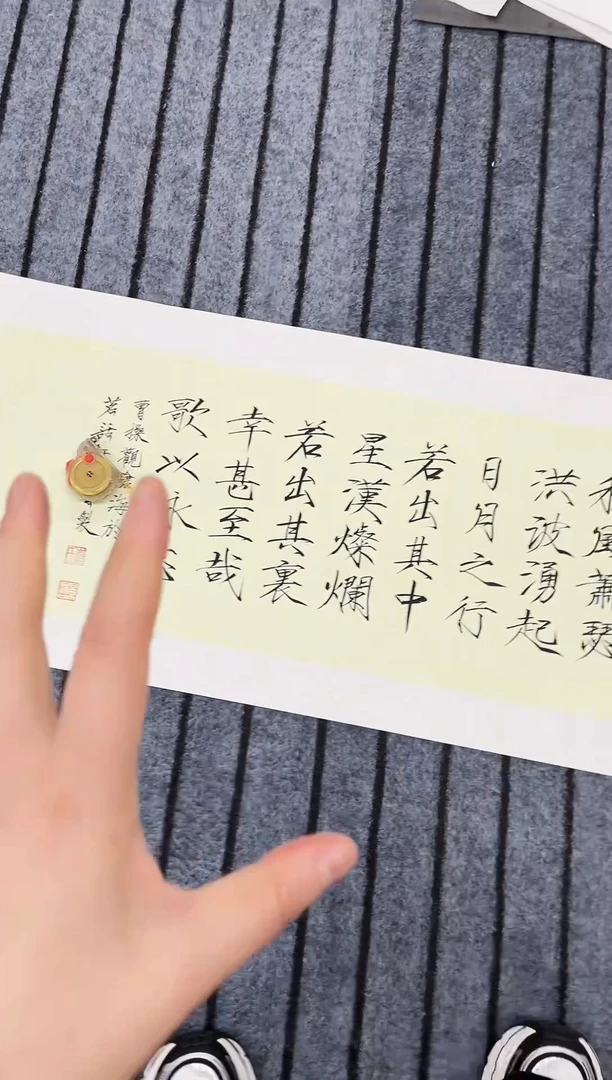 秋風蕭瑟
洪波湧起
日月之行
若出其中
星漢燦爛
若出其裏
幸甚至哉
歌以永
曹操觀滄海於
製